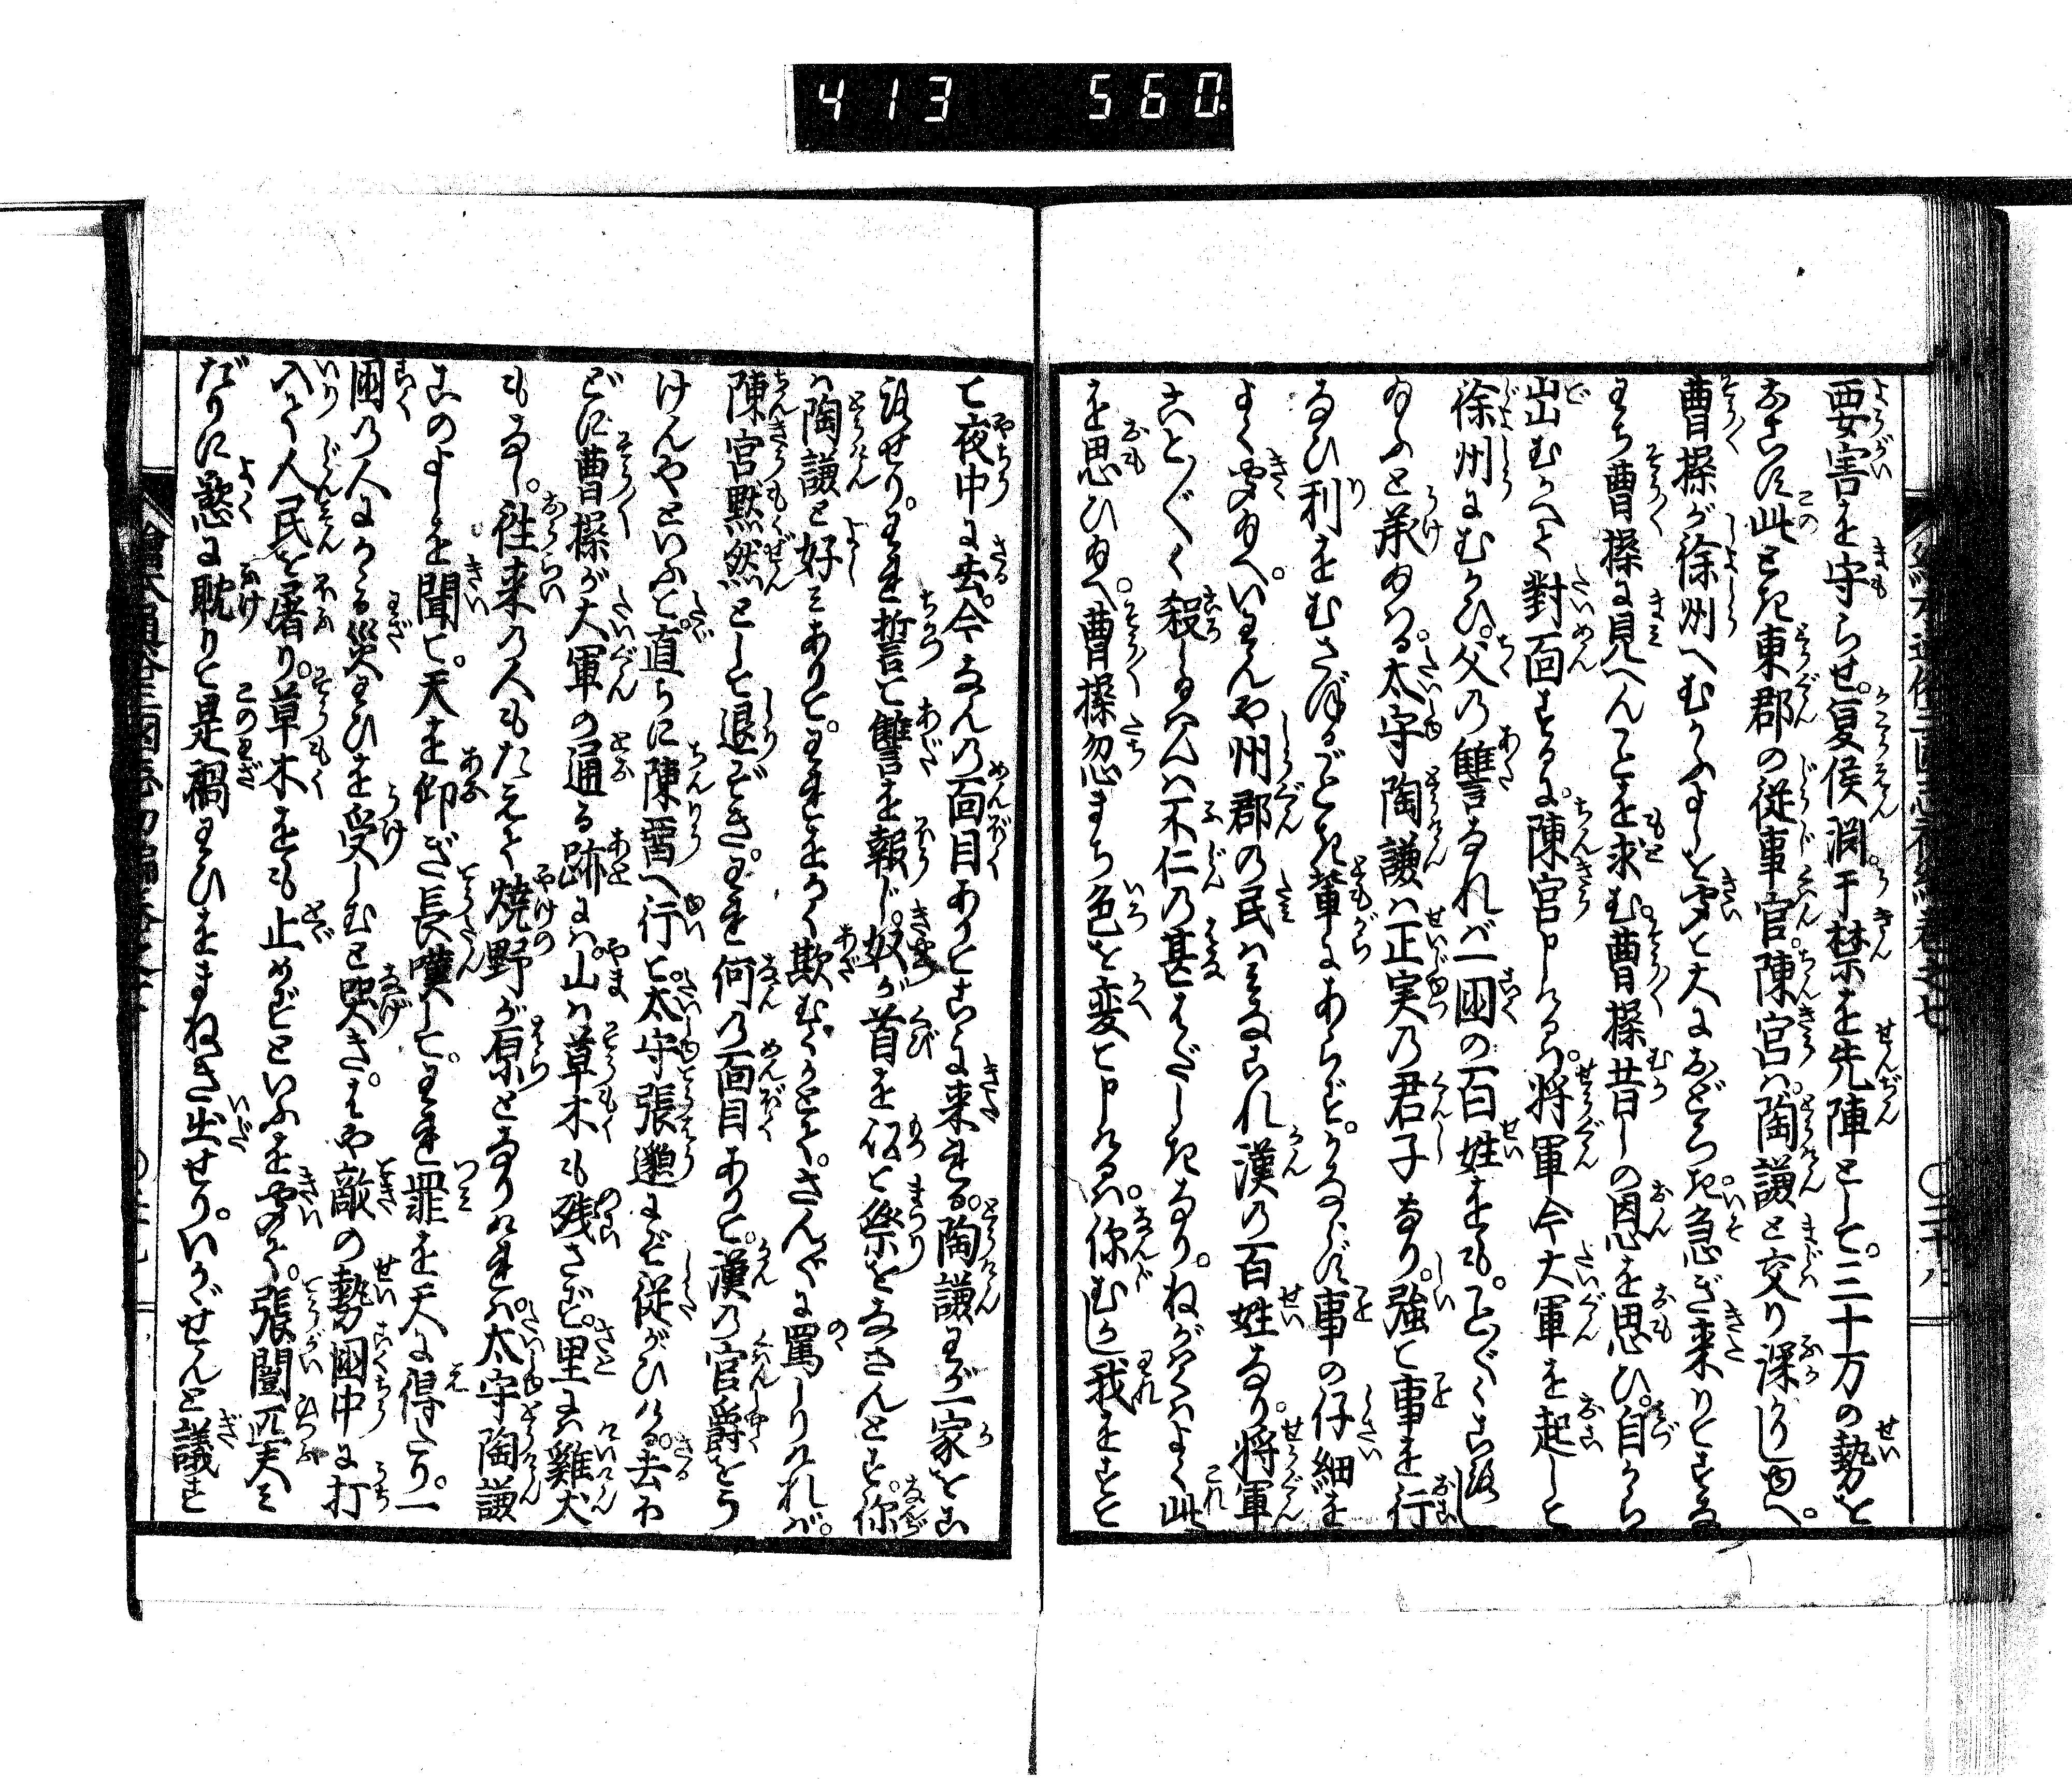 413 560
要害を守らせ。夏侯淵。于禁を先陣として。三十万の勢を
おこす此とき東郡の従事官。陳宮は。陶謙と交り深かりしゆへ。
曹操が徐州へむかふよしを聞て大におどろき。急ぎ来りてすな
わち曹操に見へんことを求む。曹操昔しの恩を思ひ。自から
出むかへて對面するに。陳宮申しけるは。将軍今大軍を起して
徐州にむかひ。父の讐なれバ一国の百姓をも。こと〴〵く殺し
給ふと承給はる。太守陶謙は正実の君子なり。強て事を行
なひ利をむさぼるごとき輩にあらず。かならず事の仔細を
よく聞給へ。いはんや州郡の民はみなこれ漢の百姓なり。将軍
こと〴〵く殺し給はんは不仁の甚はだしきなり。ねがはくはよく此
を思ひ給へ。曹操忽まち色を変て申しけるは。你むかし我をすて
て夜中に去。今なんの面目ありてこゝに来れる。陶謙わが一家をこ
殺せり。われ誓て讐を報じ。奴が首を伐て祭をなさんとす。你
は陶謙と好みありて。われをかく欺むくかとて。さんざんに罵しりければ。
陳宮黙然として退ぞき。われ何の面目ありて。漢の官爵をう
けんやといふて。直ちに陳留へ行て。太守張邈にぞ従がひける。去ほ
どに曹操が大軍の通る跡には。山は草木も残さず。里には雞犬
もなし。往来の人もたえて焼野が原となりければ。太守陶謙
此のよしを聞て。天を仰ぎ長嘆して。われ罪を天に得たり。一
国の人にかゝる災ひを受しむと哭き。はや敵の勢国中に打
入て人民を屠り。草木をも止めずといふを聞て。張闓匹夫み
だりに慾に耽りて是禍わひをまねき出せり。いかゞせんと議す